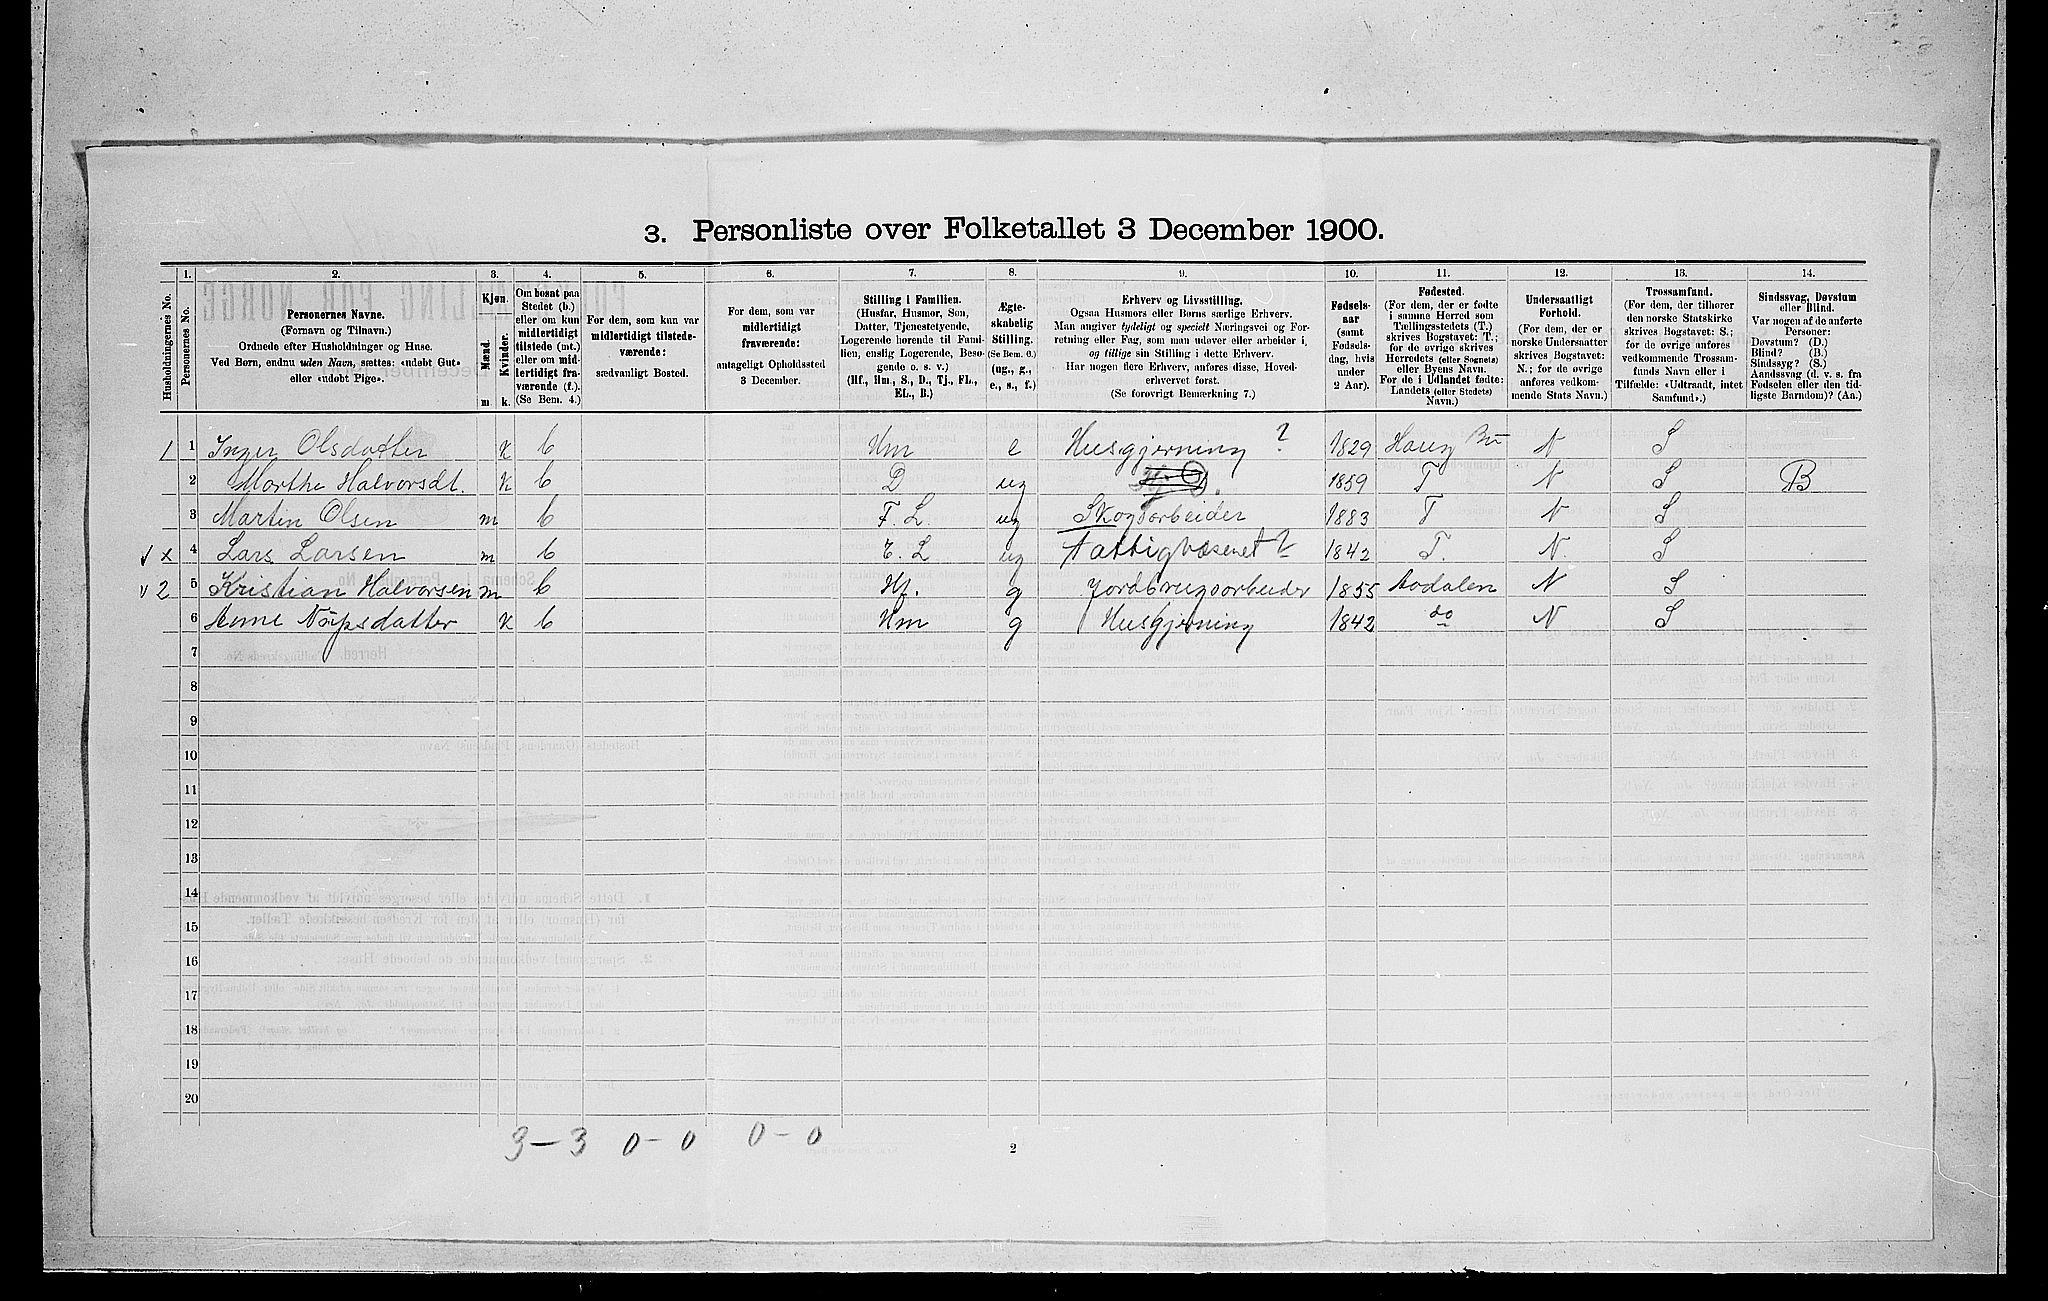 3. Personliste over Folketallet 3 December 1900.
1. 2. 3. 4. 5. 6. 7. 8. 9. 10. 11. 12. 13. 14.
Husholdningernes No.
Personernes No.
Personernes Navne.
(Fornavn og Tilnavn.)
Ordnede efter Husholdninger og Huse.
Ved Børn, endnu uden Navn, sættes: «udøbt Gut»
eller «udøbt Pige».
Kjøn.
Mænd. Kvinder.
m. k.
Om bosat paa
Stedet (b.)
eller om kun
midlertidigt
tilstede (mt.)
eller om mid-
lertidigt fra-
værende (f.)
(Se Bem. 4.)
For dem, som kun var
midlertidigt tilstede-
værende:
sædvanligt Bosted.
For dem, som var
midlertidigt
fraværende:
antageligt Opholdssted
3 December.
Stilling i Familien.
(Husfar, Husmor, Søn,
Datter, Tjenestetyende,
Logerende hørende til Fami-
lien, enslig Logerende, Besø-
gende o. s. v.)
(Hf., Hm., S., D., Tj., FL.,
EL., B.)
Ægte-
skabelig
Stilling.
(Se Bem. 6.)
(ug., g.,
e., s., f.)
Erhverv og Livsstilling.
Ogsaa Husmors eller Børns særlige Erhverv.
Man angiver tydeligt og specielt Næringsvei og For-
retning eller Fag, som man udøver eller arbeider i,
og tillige sin Stilling i dette Erhverv.
Har nogen flere Erhverv, anføres disse, Hoved-
erhvervet først.
(Se forøvrigt Bemærkning 7.)
Fødsels-
aar
(samt
Fødsels-
dag, hvis
under
2 Aar).
Fødested.
(For dem, der er fødte
i samme Herred som
Tællingsstedets (T.)
skrives Bogstavet: T.;
for de øvrige skrives
Herredets (eller Sognets)
eller Byens Navn.
For de i Udlandet fødte:
Landets (eller Stedets)
Navn.)
Undersaatligt
Forhold.
(For dem, der er
norske Undersaatter
skrives Bogstavet:
N.; for de øvrige
anføres vedkom-
mende Stats Navn.)
Trossamfund.
(For dem, der tilhører
den norske Statskirke
skrives Bogstavet: S.;
for de øvrige anføres
vedkommende Trossam-
funds Navn eller i
Tilfælde: «Udtraadt, intet
Samfund».)
Sindssvag, Døvstum
eller Blind.
Var nogen af de anførte
Personer:
Døvstum? (D.)
Blind? (B.)
Sindssyg? (S.)
Aandssvag (d. v. s. fra
Fødselen eller den tid-
ligste Barndom)? (Aa.)
1 1 Inger Olsdatter k b Hm e Husgjerning ? 1829 Haug N S
2 Marthe Halvorsdt. k b D ug 1859 T N S B
3 Martin Olsen m b F. L. ug Skogsarbeider 1883 T N S
x 4 Lars Larsen m b E. L ug Fattigvæsenet ? 1842 T. N. S
2 5 Kristian Halvorsen m b Hf. g Jordbrugsarbeider 1855 Aadalen N S
6 Anne Nilsdatter k b Hm g Husgjerning 1842 do N S
7
8
9
10
11
12
13
14
15
16
17
18
19
20
3 – 3 0 – 0 0 – 0
2